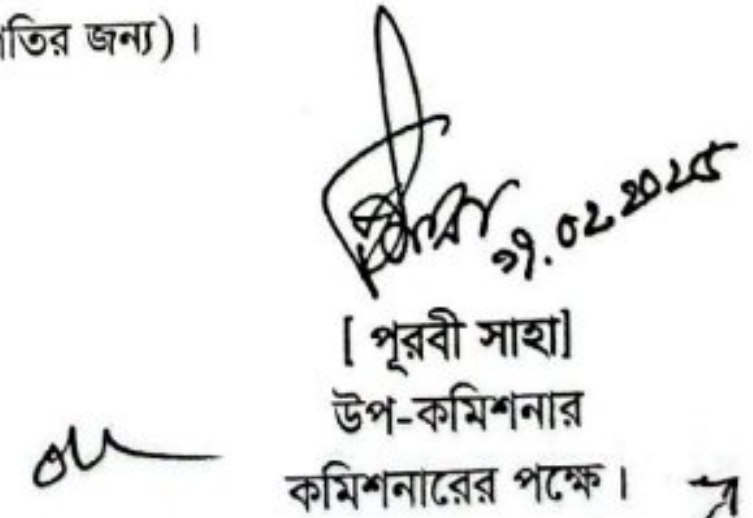 তির জন্য)।
02 2025
[ পূরবী সাহা]
উপ-কমিশনার
কমিশনারের পক্ষে।